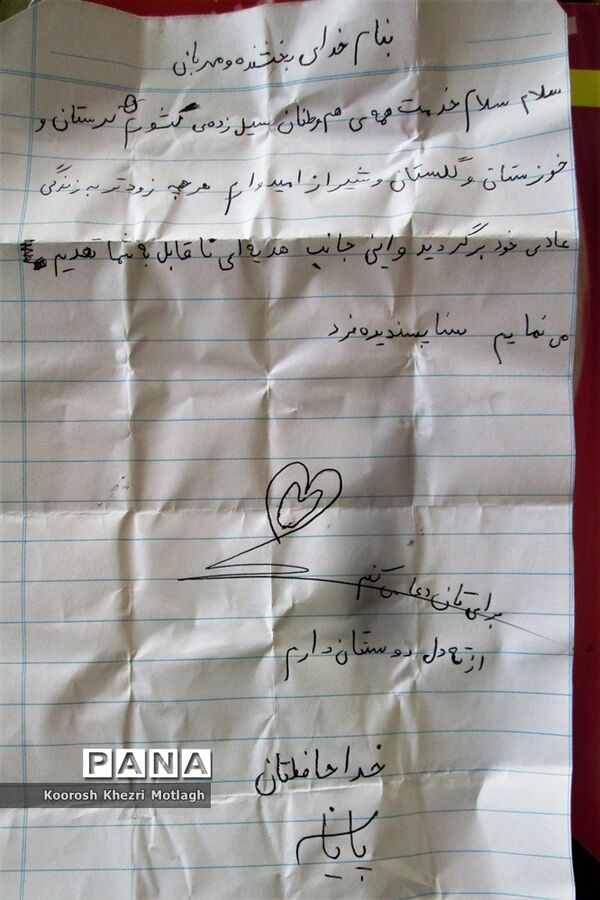 بنام خدای بخشنده و مهربان
سلام سلام خدمت همه‌ی هم‌وطنان سیل زده‌ی کشورم لرستان و
خوزستان و گلستان و شیراز امیدوارم هر چه زودتر به زندگی
عادی خود برگردید و این جانب هدیه‌ای ناقابل به شما تقدیم
می نمایم سنا پسندیده فرد
برای تان دعا می کنم
از ته دل دوستان دارم
خداحافظتان
پایان
PANA
Koorosh Khezri Motlagh